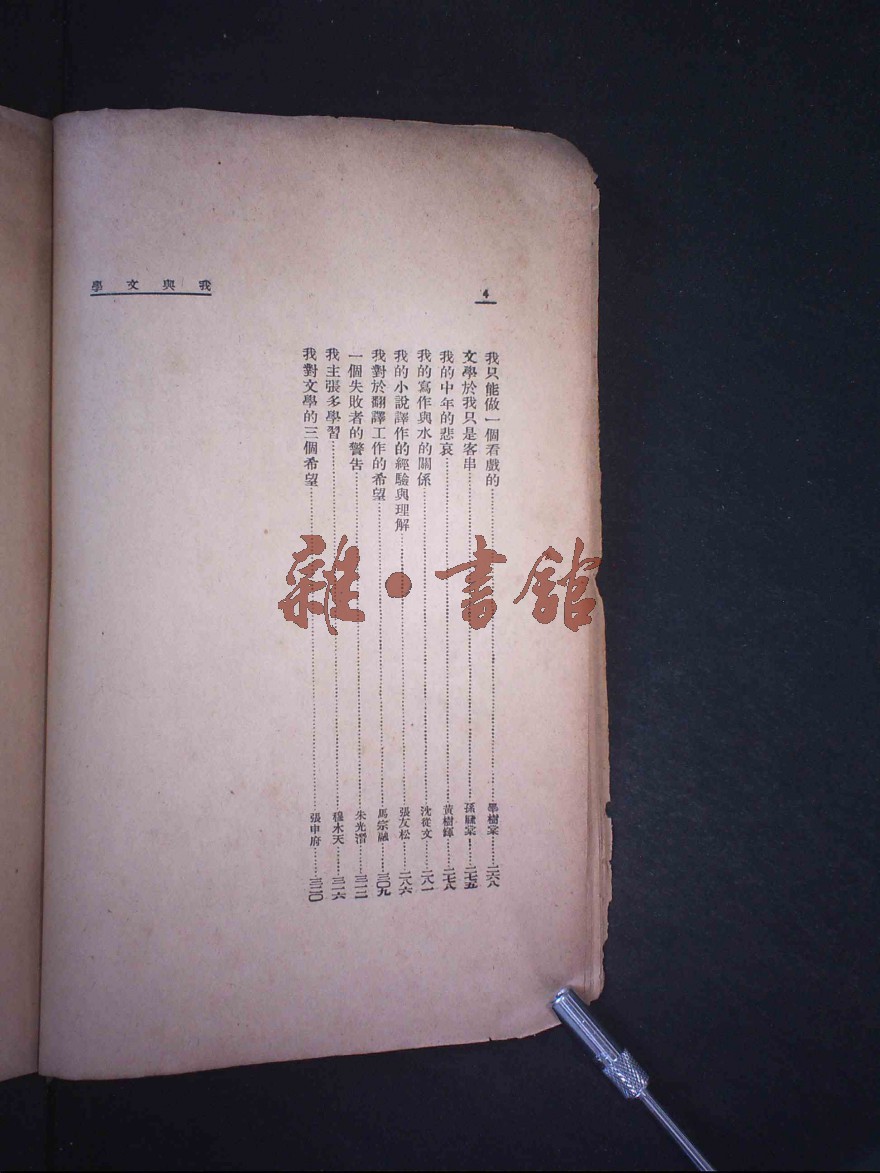 我與文學
4
我只能做一個看戲的……畢樹棠……二六八
文學於我只是客串……孫毓棠……二七五
我的中年的悲哀……黃樹輝……二七八
我的寫作與水的關係……沈從文……二八一
我的小說譯作的經驗與理解……張友松……二八六
我對於翻譯工作的希望……馬宗融……三〇九
一個失敗者的警告……朱光潛……三一二
我主張多學習……穆木天……三一六
我對文學的三個希望……張申府……三二〇
雜·書館